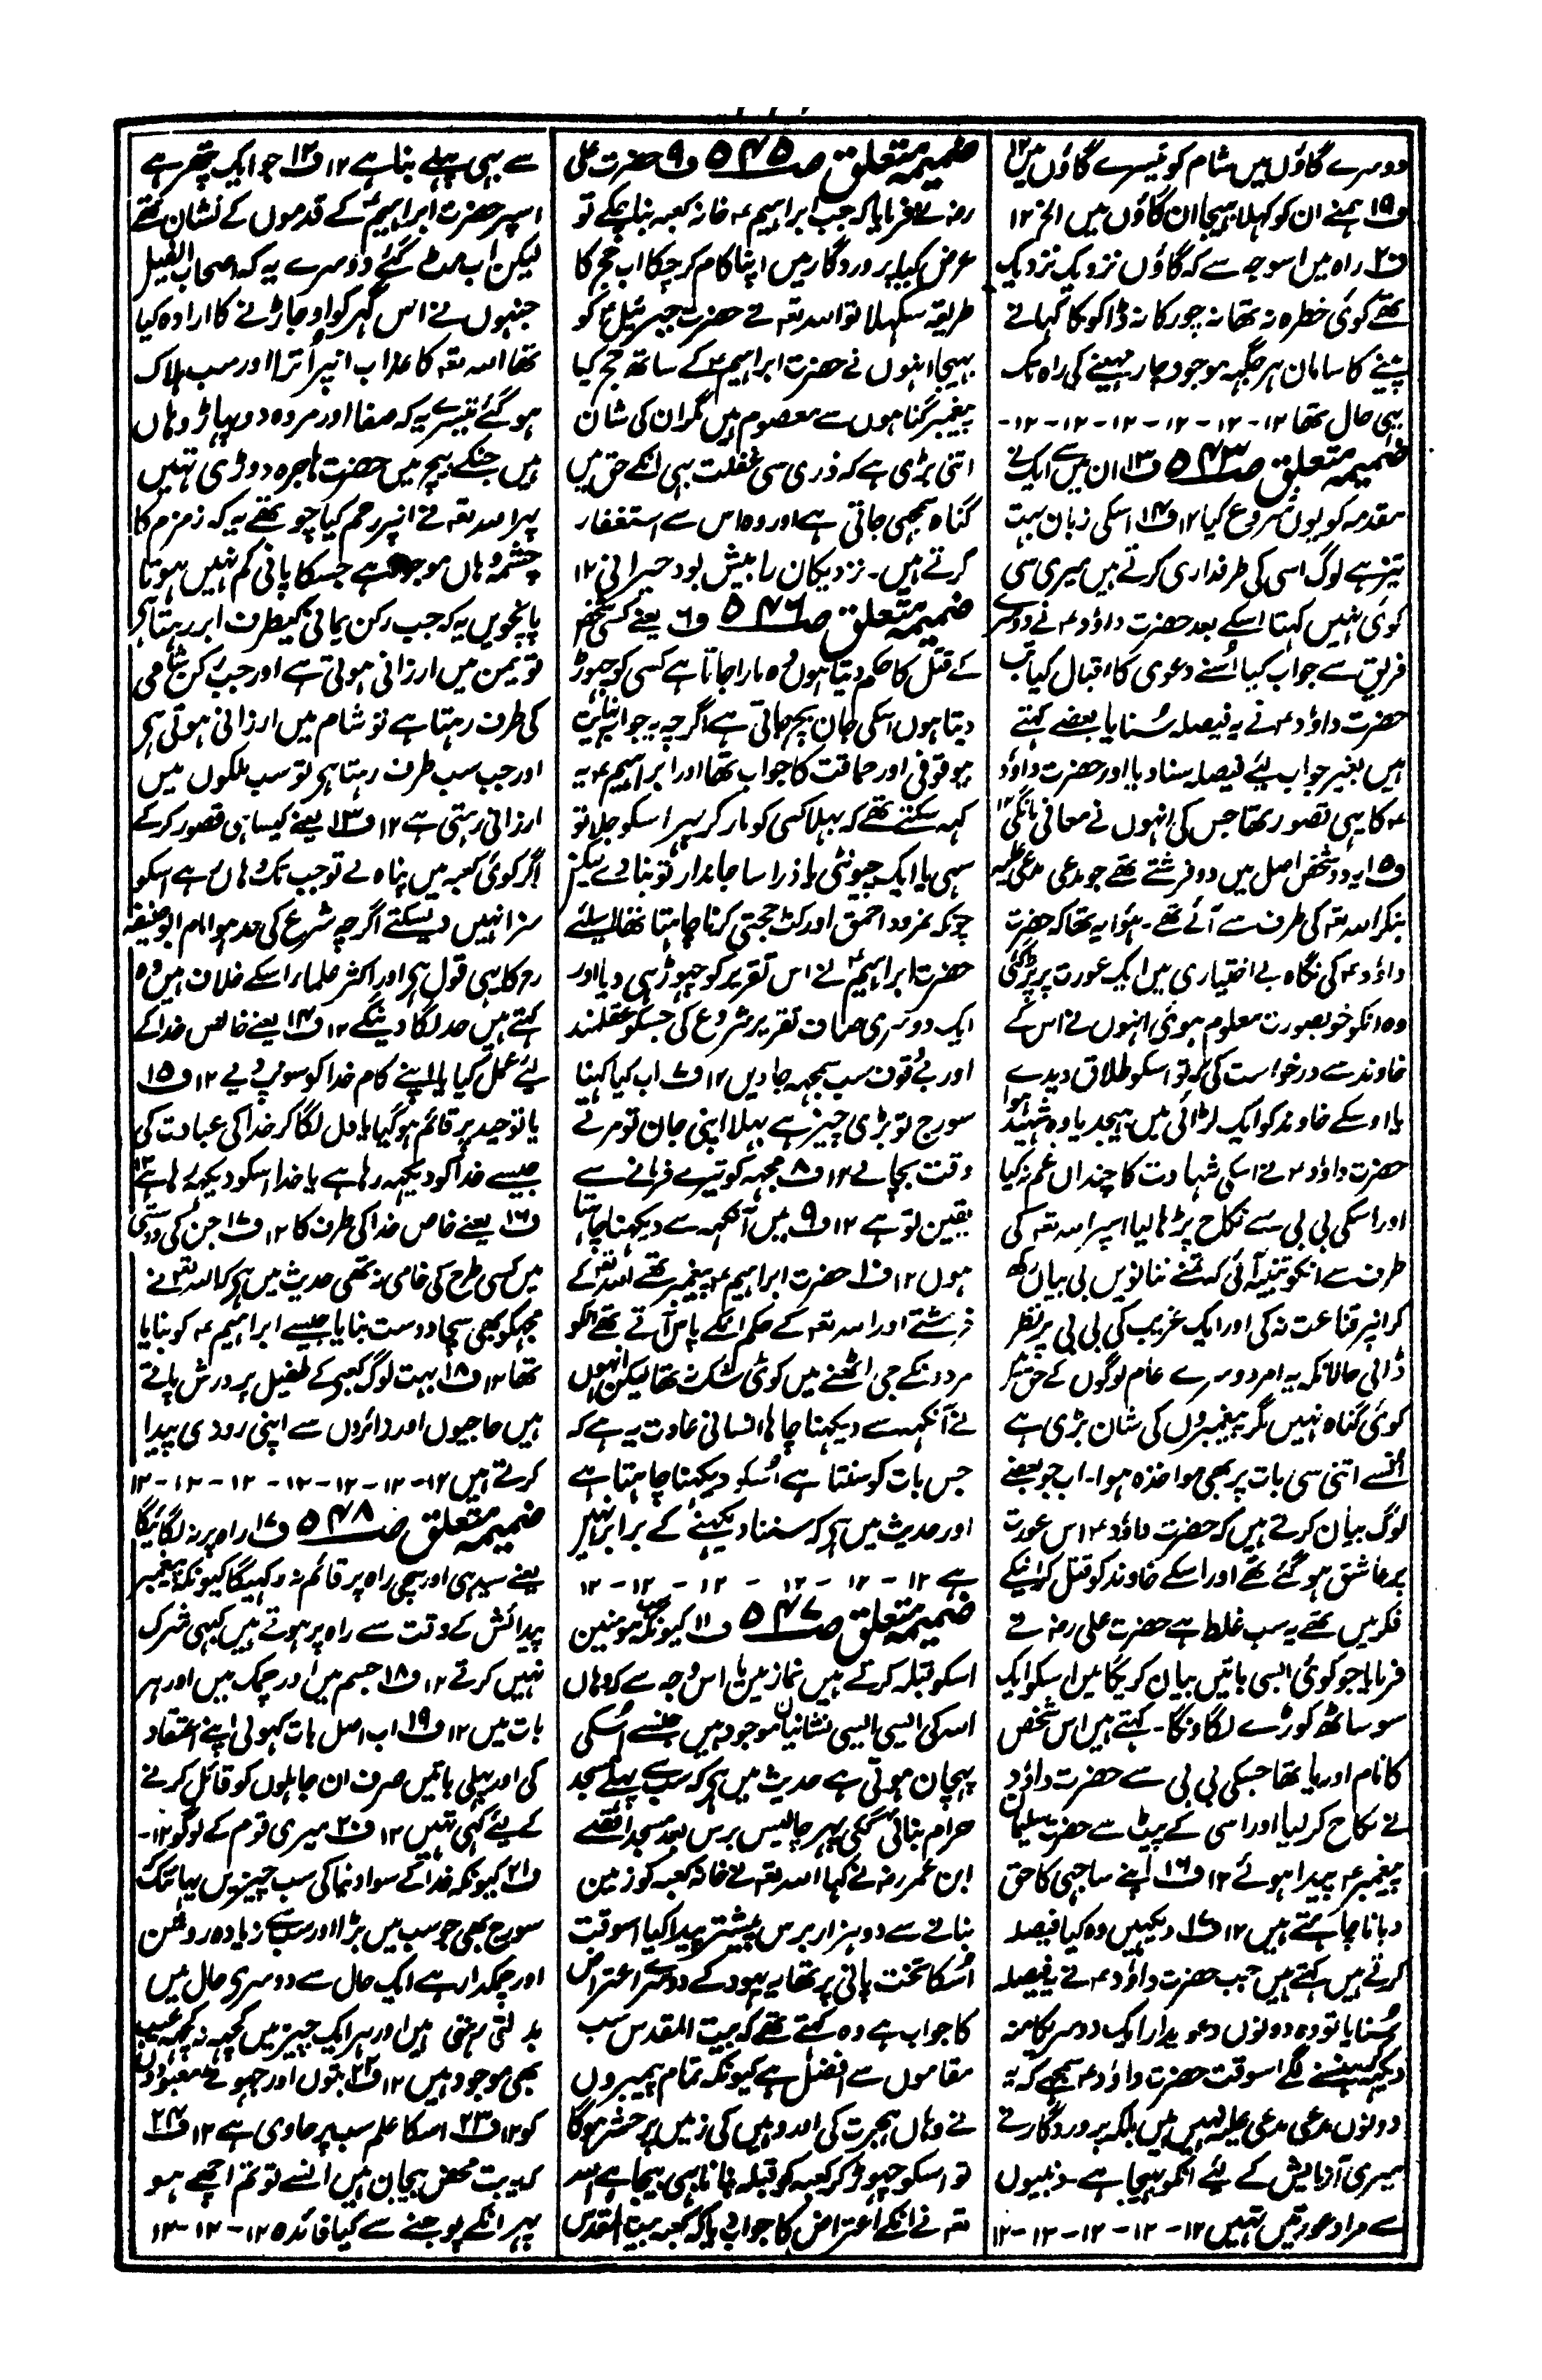 دوسرے گاؤں میں شام کو تیسرے گاؤں میں ۱۲
ف۱۹ ہمنے ان کو کہلا بھیجا ان گاؤں میں الخ ۱۲
ف۲۰ راہ میں اسوجہ سے کہ گاؤں نزدیک نزدیک
تھے کوئی خطرہ نہ تھا نہ چور کا نہ ڈاکو کا کہانے
پینے کا سامان ہر جگہہ موجود چار مہینے کی راہ تک
یہی حال تھا ۱۲-۱۲-۱۲-۱۲-۱۲-۱۲-
ضمیمہ متعلق صـ ۵۴۳ ف۱۳ ان میں سے ایک نے
مقدمہ کو یوں شروع کیا ۱۲ ف۱۴ اسکی زبان بہت
تیز ہے لوگ اسی کی طرفداری کرتے ہیں میری سی
کوئی نہیں کہتا اسکے بعد حضرت داؤد ع نے دوسرے
فریق سے جواب کیا اُسنے دعوی کا اقبال کیا تب
حضرت داؤد ع نے یہ فیصلہ سُنایا بعضے کہتے
ہیں بغیر جواب لیئے فیصلہ سنا دیا اور حضرت داؤد
ع کا یہی قصور تھا جس کی انہوں نے معافی مانگی ۱۲
ف۱۵ یہ دو شخص اصل میں دو فرشتے تھے جو مدعی مدعی علیہ
بنکر اللہ تعہ کی طرف سے آئے تھے۔ ہوا یہ تھا کہ حضرت
داؤد ع کی نگاہ بے اختیاری میں ایک عورت پر پڑ گئی
وہ انکو خوبصورت معلوم ہوئی انہوں نے اس کے
خاوند سے درخواست کی کہ تو اسکو طلاق دیدے
یا اوسکے خاوند کو ایک لڑائی میں بھیجدیا وہ شہید ہوا
حضرت داؤد ع نے اسکی شہادت کا چنداں غم نہ کیا
اور اسکی بی بی سے نکاح پڑھا لیا اسپر اللہ تعہ کی
طرف سے انکو تنبیہ آئی کہ تمنے ننانویں بی بیاں رکھ
کر انپر قناعت نہ کی اور ایک غریب کی بی بی پر نظر
ڈالی حالانکہ یہ امر دوسرے عام لوگوں کے حق میں
کوئی گناہ نہیں مگر پیغمبروں کی شان بڑی ہے
انسے اتنی سی بات پر بھی مواخذہ ہوا۔ اب جو بعضے
لوگ بیان کرتے ہیں کہ حضرت داؤد ع اس عورت
پر عاشق ہو گئے تھے اور اسکے خاوند کو قتل کرانیکے
فکر میں تھے یہ سب غلط ہے حضرت علی رضہ نے
فرمایا جو کوئی ایسی باتیں بیان کریگا میں اسکو ایک
سو ساٹھ کوڑے لگاونگا۔ کہتے ہیں اس شخص
کا نام اوریا تھا جسکی بی بی سے حضرت داؤد
نے نکاح کر لیا اور اسی کے پیٹ سے حضرت سلیمان
پیغمبر ع پیدا ہوئے ۱۲ ف۱۶ اپنے ساجھی کا حق
دبانا چاہتے ہیں ۱۲ ف۱۷ دیکہیں وہ کیا فیصلہ
کرتے ہیں کہتے ہیں جب حضرت داؤد ع نے یہ فیصلہ
سُنایا تو وہ دونوں دعویدار ایک دوسریکا منہ
دیکھہ ہنسنے لگے اسوقت حضرت داؤد ع سمجھے کہ یہ
دونوں مدعی مدعی علیہ نہیں ہیں بلکہ پروردگار نے
میری آزمایش کے لئے انکو بھیجا ہے۔ دنبیوں
سے مراد عورتیں تہیں ۱۲-۱۲-۱۲-۱۲-۱۲
ضمیمہ متعلق صـ ۵۴۵ ف۹ حضرت علی
رضہ نے فرمایا کہ جب ابراہیم ع خانہ کعبہ بنا چکے تو
عرض کیا پروردگار میں اپنا کام کر چکا اب حج کا
طریقہ سکہلا تو اللہ تعہ نے حضرت جبرئیل ع کو
بہیجا انہوں نے حضرت ابراہیم ع کے ساتھ حج کیا
پیغمبر گناہوں سے معصوم ہیں مگر ان کی شان
اتنی بڑی ہے کہ ذری سی غفلت بہی انکے حق میں
گناہ سمجھی جاتی ہے اور وہ اس سے استغفار
کرتے ہیں۔ نزدیکان را بیش بود حیرانی ۱۲
ضمیمہ متعلق صـ ۵۴۶ ف۶ یعنے کسی شخص
کے قتل کا حکم دیتا ہوں وہ مارا جاتا ہے کسی کو چھوڑ
دیتا ہوں اسکی جان بچ جاتی ہے اگرچہ یہ جواب نہایت
بیوقوفی اور حماقت کا جواب تھا اور ابراہیم ع یہ
کہہ سکتے تھے کہ بہلا کسی کو مار کر پہر اسکو جلا تو
سہی یا ایک چیونٹی یا ذرا سا جاندار تو بنا دے لیکن
چونکہ نمرود احمق اور کٹ حجتی کرنا چاہتا تھا اسلیئے
حضرت ابراہیم ع نے اس تقریر کو چھوڑ ہی دیا اور
ایک دوسری صاف تقریر شروع کی جسکو عقلمند
اور بے وقوف سب سمجہہ جاویں ۱۲ ف۷ اب کیا کہنا
سورج تو بڑی چیز ہے بہلا اپنی جان تو مرتے
وقت بچا لے ۱۲ ف۸ مجہہ کو تیرے فرمانے سے
یقین تو ہے ۱۲ ف۹ میں آنکہہ سے دیکہنا چاہتا
ہوں ۱۲ ف۱۰ حضرت ابراہیم ع پیغمبر تھے اللہ تعہ کے
فرشتے اور اللہ تعہ کے حکم انکے پاس آتے تھے انکو
مردونکے جی اٹھنے میں کوئی شک نہ تھا لیکن انہوں
نے آنکہہ سے دیکہنا چاہا انسانی عادت یہ ہے کہ
جس بات کو سنتا ہے اُسکو دیکہنا چاہتا ہے
اور حدیث میں ہے کہ سننا دیکہنے کے برابر نہیں
ہے ۱۲-۱۲-۱۲-۱۲-۱۲-۱۲
ضمیمہ متعلق صـ ۵۴۷ ف۱۱ کیونکہ سب مومنین
اسکو قبلہ کرتے ہیں نماز میں یا اس وجہ سے کہ وہاں
اللہ کی ایسی ایسی نشانیاں موجود ہیں جنسے اُسکی
پہچان ہوتی ہے حدیث میں ہے کہ سب سے پہلے مسجد
حرام بنائی گئی پہر چالیس برس بعد مسجد اقصے
ابن عمر رضہ نے کہا اللہ تعہ نے خانہ کعبہ کو زمین
بنانے سے دو ہزار برس پیشتر پیدا کیا اسوقت
اُسکا تخت پانی پر تھا یہ یہود کے دوسرے اعتراض
کا جواب ہے وہ کہتے تھے کہ بیت المقدس سب
مقاموں سے افضل ہے کیونکہ تمام پیمبروں
نے وہاں ہجرت کی اور وہیں کی زمیں پر حشر ہوگا
تو اسکو چھوڑ کر کعبہ کو قبلہ بنانا ہی بیجا ہے اللہ
تعہ نے انکے اعتراض کا جواب دیا کہ کعبہ بیت المقدس
سے بہی پہلے بنا ہے ۱۲ ف۱۲ جو ایک پتھر ہے
اسپر حضرت ابراہیم ع کے قدموں کے نشان تھے
لیکن اب مٹ گئے دوسرے یہ کہ اصحاب الفیل
جنہوں نے اس گہر کو اوجاڑنے کا ارادہ کیا
تھا اللہ تعہ کا عذاب انپر اُترا اور سب ہلاک
ہو گئے تیسرے یہ کہ صفا اور مروہ دو پہاڑ وہاں
ہیں جنکے بیچ میں حضرت ہاجرہ دوڑی تہیں
پہر اللہ تعہ نے انپر رحم کیا چوتھے یہ کہ زمزم کا
چشمہ وہاں موجود ہے جسکا پانی کم نہیں ہوتا
پانچویں یہ کہ جب رکن یمانی کیطرف ابر رہتا ہے
تو یمن میں ارزانی ہوتی ہے اور جب رکن شامی
کی طرف رہتا ہے تو شام میں ارزانی ہوتی ہے
اور جب سب طرف رہتا ہے تو سب ملکوں میں
ارزانی رہتی ہے ۱۲ ف۱۳ یعنے کیسا ہی قصور کرکے
اگر کوئی کعبہ میں پناہ لے تو جب تک وہاں ہے اسکو
سزا نہیں دیسکتے اگرچہ شرع کی حد ہو امام ابو حنیفہ
رح کا یہی قول ہے اور اکثر علماء اسکے خلاف ہیں وہ
کہتے ہیں حد لگا دینگے ۱۲ ف۱۴ یعنے خالص خدا کے
لیئے عمل کیا یا اپنے کام خدا کو سونپ دیے ۱۲ ف۱۵
یا توحید پر قائم ہو گیا یا دل لگا کر خدا کی عبادت کی
جیسے خدا کو دیکہہ رہا ہے یا خدا اسکو دیکہہ رہا ہے ۱۲
ف۱۶ یعنے خاص خدا کی طرف کا ۱۲ ف۱۷ جن کی دوستی
میں کسی طرح کی خامی نہ تھی حدیث میں ہے کہ اللہ تعہ نے
مجہکو بھی سچا دوست بنایا جیسے ابراہیم ع کو بنایا
تھا ۱۲ ف۱۸ بہت لوگ کعبہ کے طفیل پرورش پاتے
ہیں حاجیوں اور زائروں سے اپنی روزی پیدا
کرتے ہیں ۱۲-۱۲-۱۲-۱۲-۱۲-۱۲-۱۲
ضمیمہ متعلق صـ ۵۴۸ ف۱۷ راہ پر نہ لگائیگا
یعنے سیدہی اور سچی راہ پر قائم نہ رکہیگا کیونکہ پیغمبر
پیدائش کے وقت سے راہ پر ہوتے ہیں کبہی شرک
نہیں کرتے ۱۲ ف۱۸ جسم میں اور چمک میں اور ہر
بات میں ۱۲ ف۱۹ اب اصل بات کہولی اپنے اعتقاد
کی اور پہلی باتیں صرف ان جاہلوں کو قائل کرنے
کے لیئے کہی تہیں ۱۲ ف۲۰ میری قوم کے لوگو ۱۲-
ف۲۱ کیونکہ خدا کے سوا دنیا کی سب چیزیں یہانتک
سورج بھی جو سب میں بڑا اور سب سے زیادہ روشن
اور چمکدار ہے ایک حال سے دوسری حال میں
بدلتی رہتی ہیں اور ہر ایک چیز میں کچہہ نہ کچہہ عیب
بھی موجود ہیں ۱۲ ف۲۲ بتوں اور جہوٹے معبودوں
کو ۱۲ ف۲۳ اسکا علم سب پر حاوی ہے ۱۲ ف۲۴
کہ یہ بت محض بیجان ہیں انسے تو تم اچھے ہو
پہر انکے پوجنے سے کیا فائدہ ۱۲-۱۲-۱۲